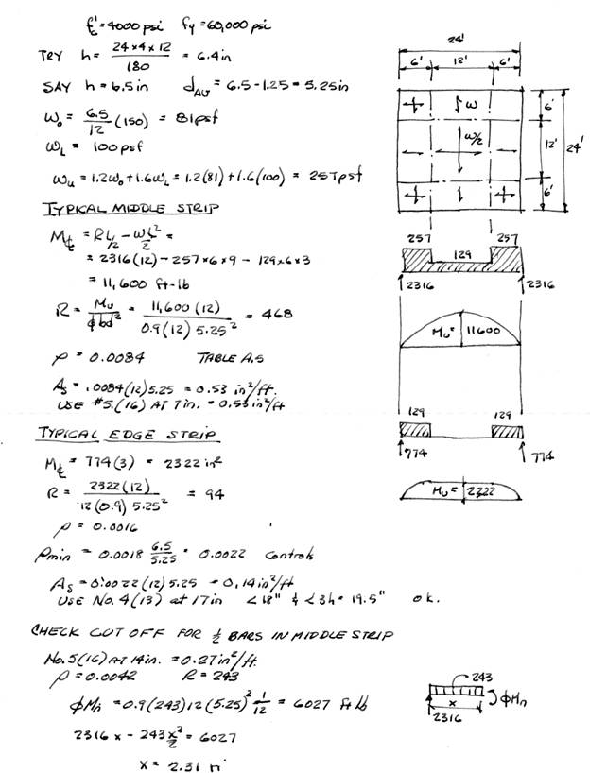 f'c = 4000 psi fy = 60,000 psi
TRY h = 24×4×12 / 180 = 6.4 in
SAY h = 6.5 in dAVG = 6.5 - 1.25 = 5.25 in
Wo = 6.5/12 (150) = 81 psf
WL = 100 psf
Wu = 1.2Wo + 1.6WL = 1.2(81) + 1.6(100) = 257 psf
TYPICAL MIDDLE STRIP
= 2316(12) - 257×6×9 - 129×6×3
= 11,600 ft-lb
R = Mu / φbd² = 11,600(12) / 0.9(12) 5.25² = 468
ρ = 0.0084 TABLE A.5
As = .0084(12)5.25 = 0.53 in²/ft.
USE #5(16) AT 7in. - 0.53 in²/ft
TYPICAL EDGE STRIP
M℄ = 774(3) = 2322 in²
R = 2322(12) / 12(0.9) 5.25² = 94
ρ = 0.0016
ρmin = 0.0018 6.5/5.25 = 0.0022 Controls
As = 0.0022(12)5.25 = 0.14 in²/ft
USE No. 4(13) at 17in < 18" & < 3h = 19.5" OK.
CHECK CUT OFF FOR ½ BARS IN MIDDLE STRIP
No. 5(16) AT 14in. = 0.27 in²/ft.
ρ = 0.0042 R = 243
φMn = 0.9(243)12(5.25)² 1/12 = 6027 ft lb
2316x - 243x²/2 = 6027
x = 2.31 ft
24'
6' 12' 6'
W
W/2
6'
12'
24'
6'
257 257
129
2316 2316
Mu = 11600
129 129
774 774
Mu = 2322
243
x
φMn
2316